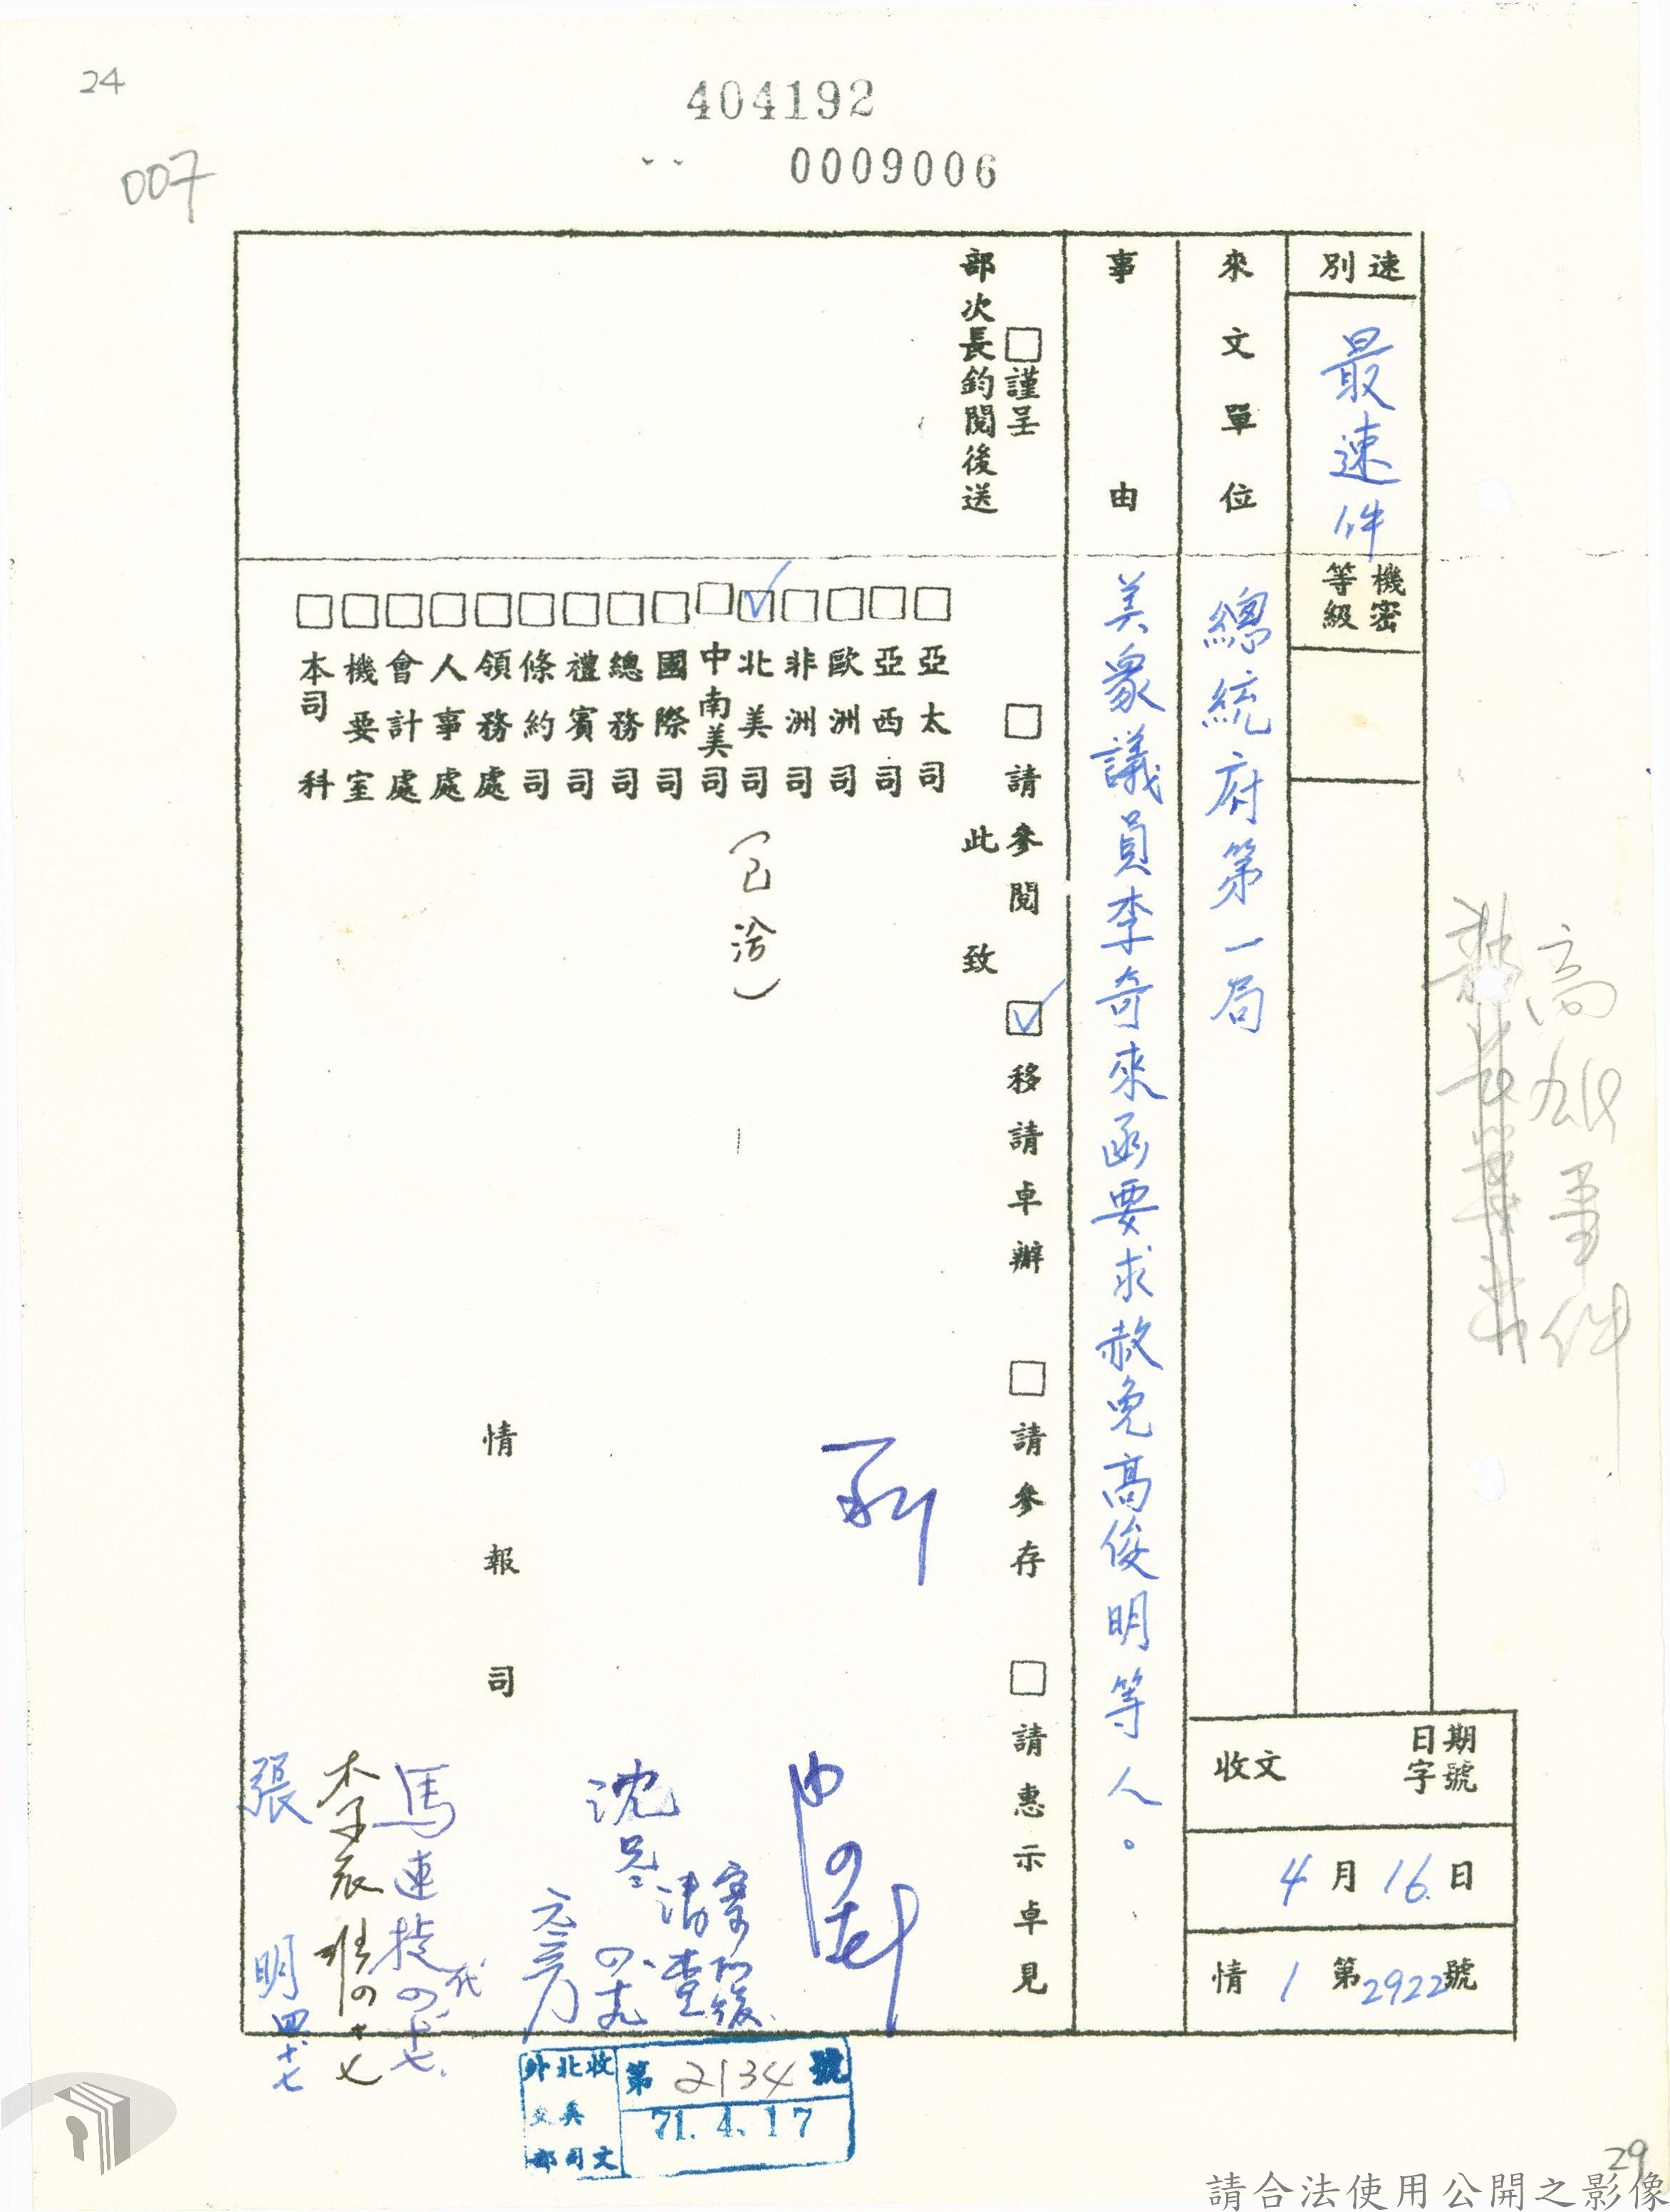 24
404192
0009006
007
速別
最速件
機密等級
來文單位
總統府第一局
收文
日期字號
4月16日
情1第2922號
事由
美眾議員李奇來函要求赦免高俊明等人。
□謹呈
部次長鈞閱後送
□請參閱
☑移請卓辦
□請參存
□請惠示卓見
此致
□亞太司
□亞西司
□歐洲司
□非洲司
☑北美司(已洽)
□中南美司
□國際司
□總務司
□禮賓司
□條約司
□領務處
□人事處
□會計處
□機要室
□本司 科
情報司
高雄事件
沈
馬
代
張明 四.十七
外交部北美司收文
第2134號
71.4.17
29
請合法使用公開之影像